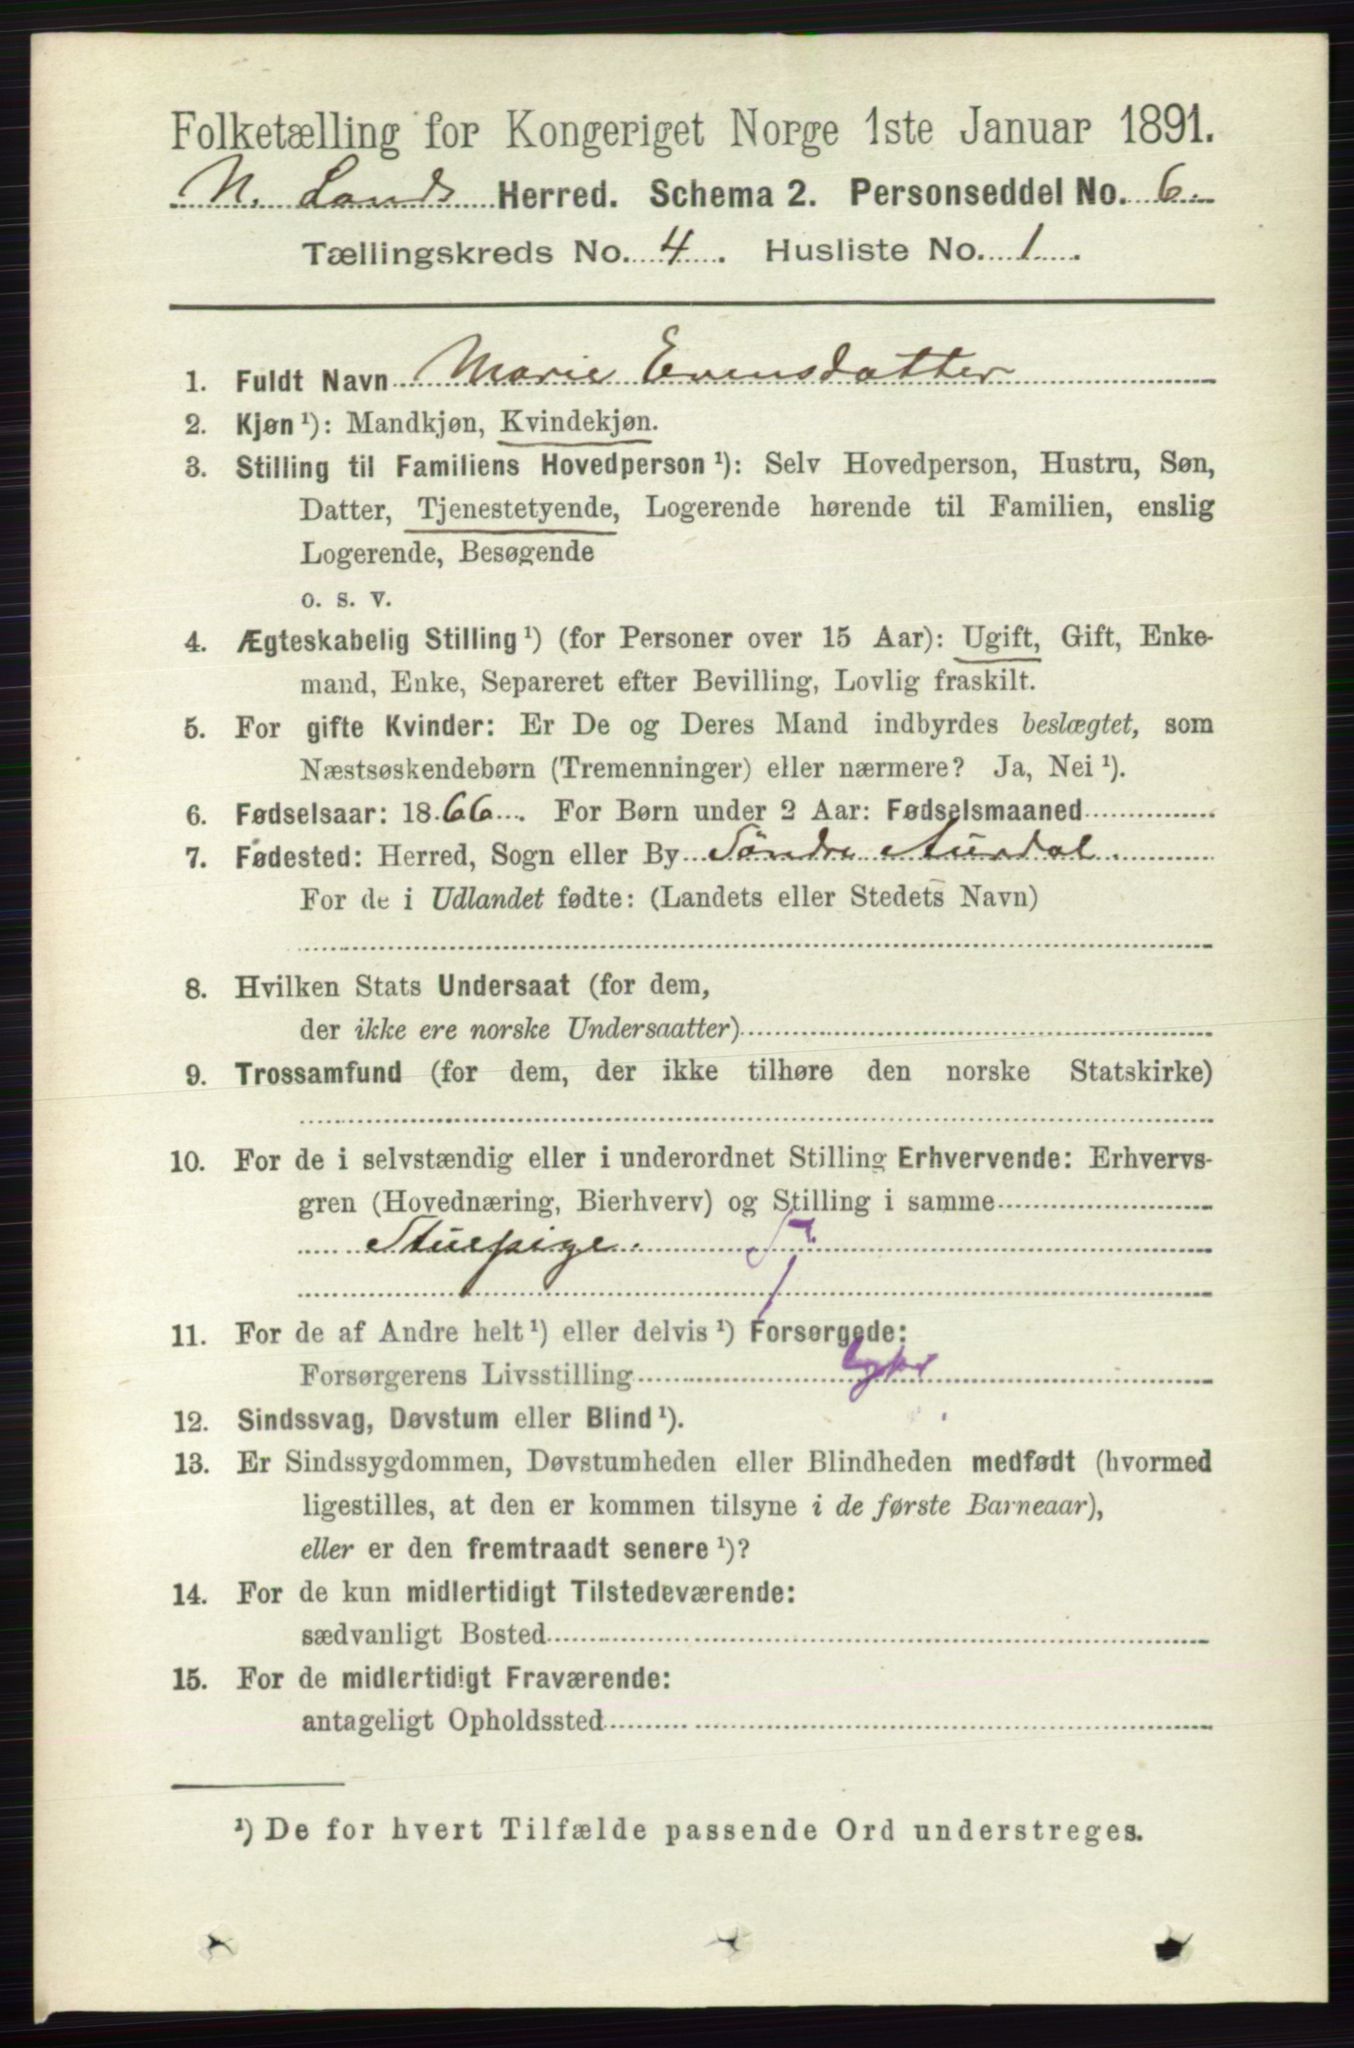 Folketælling for Kongeriget Norge 1ste Januar 1891.
N. Lands Herred. Schema 2. Personseddel No. 6.
Tællingskreds No. 4. Husliste No. 1.
1. Fuldt Navn Marie Evensdatter
2. Kjøn ¹): Mandkjøn, Kvindekjøn.
3. Stilling til Familiens Hovedperson ¹): Selv Hovedperson, Hustru, Søn,
Datter, Tjenestetyende, Logerende hørende til Familien, enslig
Logerende, Besøgende
o. s. v.
4. Ægteskabelig Stilling ¹) (for Personer over 15 Aar): Ugift, Gift, Enke-
mand, Enke, Separeret efter Bevilling, Lovlig fraskilt.
5. For gifte Kvinder: Er De og Deres Mand indbyrdes beslægtet, som
Næstsøskendebørn (Tremenninger) eller nærmere? Ja, Nei ¹).
6. Fødselsaar: 1866. For Børn under 2 Aar: Fødselsmaaned
7. Fødested: Herred, Sogn eller By Søndre Aurdal.
For de i Udlandet fødte: (Landets eller Stedets Navn)
8. Hvilken Stats Undersaat (for dem,
der ikke ere norske Undersaatter)
9. Trossamfund (for dem, der ikke tilhøre den norske Statskirke)
10. For de i selvstændig eller i underordnet Stilling Erhvervende: Erhvervs-
gren (Hovednæring, Bierhverv) og Stilling i samme
Stuepige.
11. For de af Andre helt ¹) eller delvis ¹) Forsørgede:
Forsørgerens Livsstilling
12. Sindssvag, Døvstum eller Blind ¹).
13. Er Sindssygdommen, Døvstumheden eller Blindheden medfødt (hvormed
ligestilles, at den er kommen tilsyne i de første Barneaar),
eller er den fremtraadt senere ¹)?
14. For de kun midlertidigt Tilstedeværende:
sædvanligt Bosted
15. For de midlertidigt Fraværende:
antageligt Opholdssted
¹) De for hvert Tilfælde passende Ord understreges.